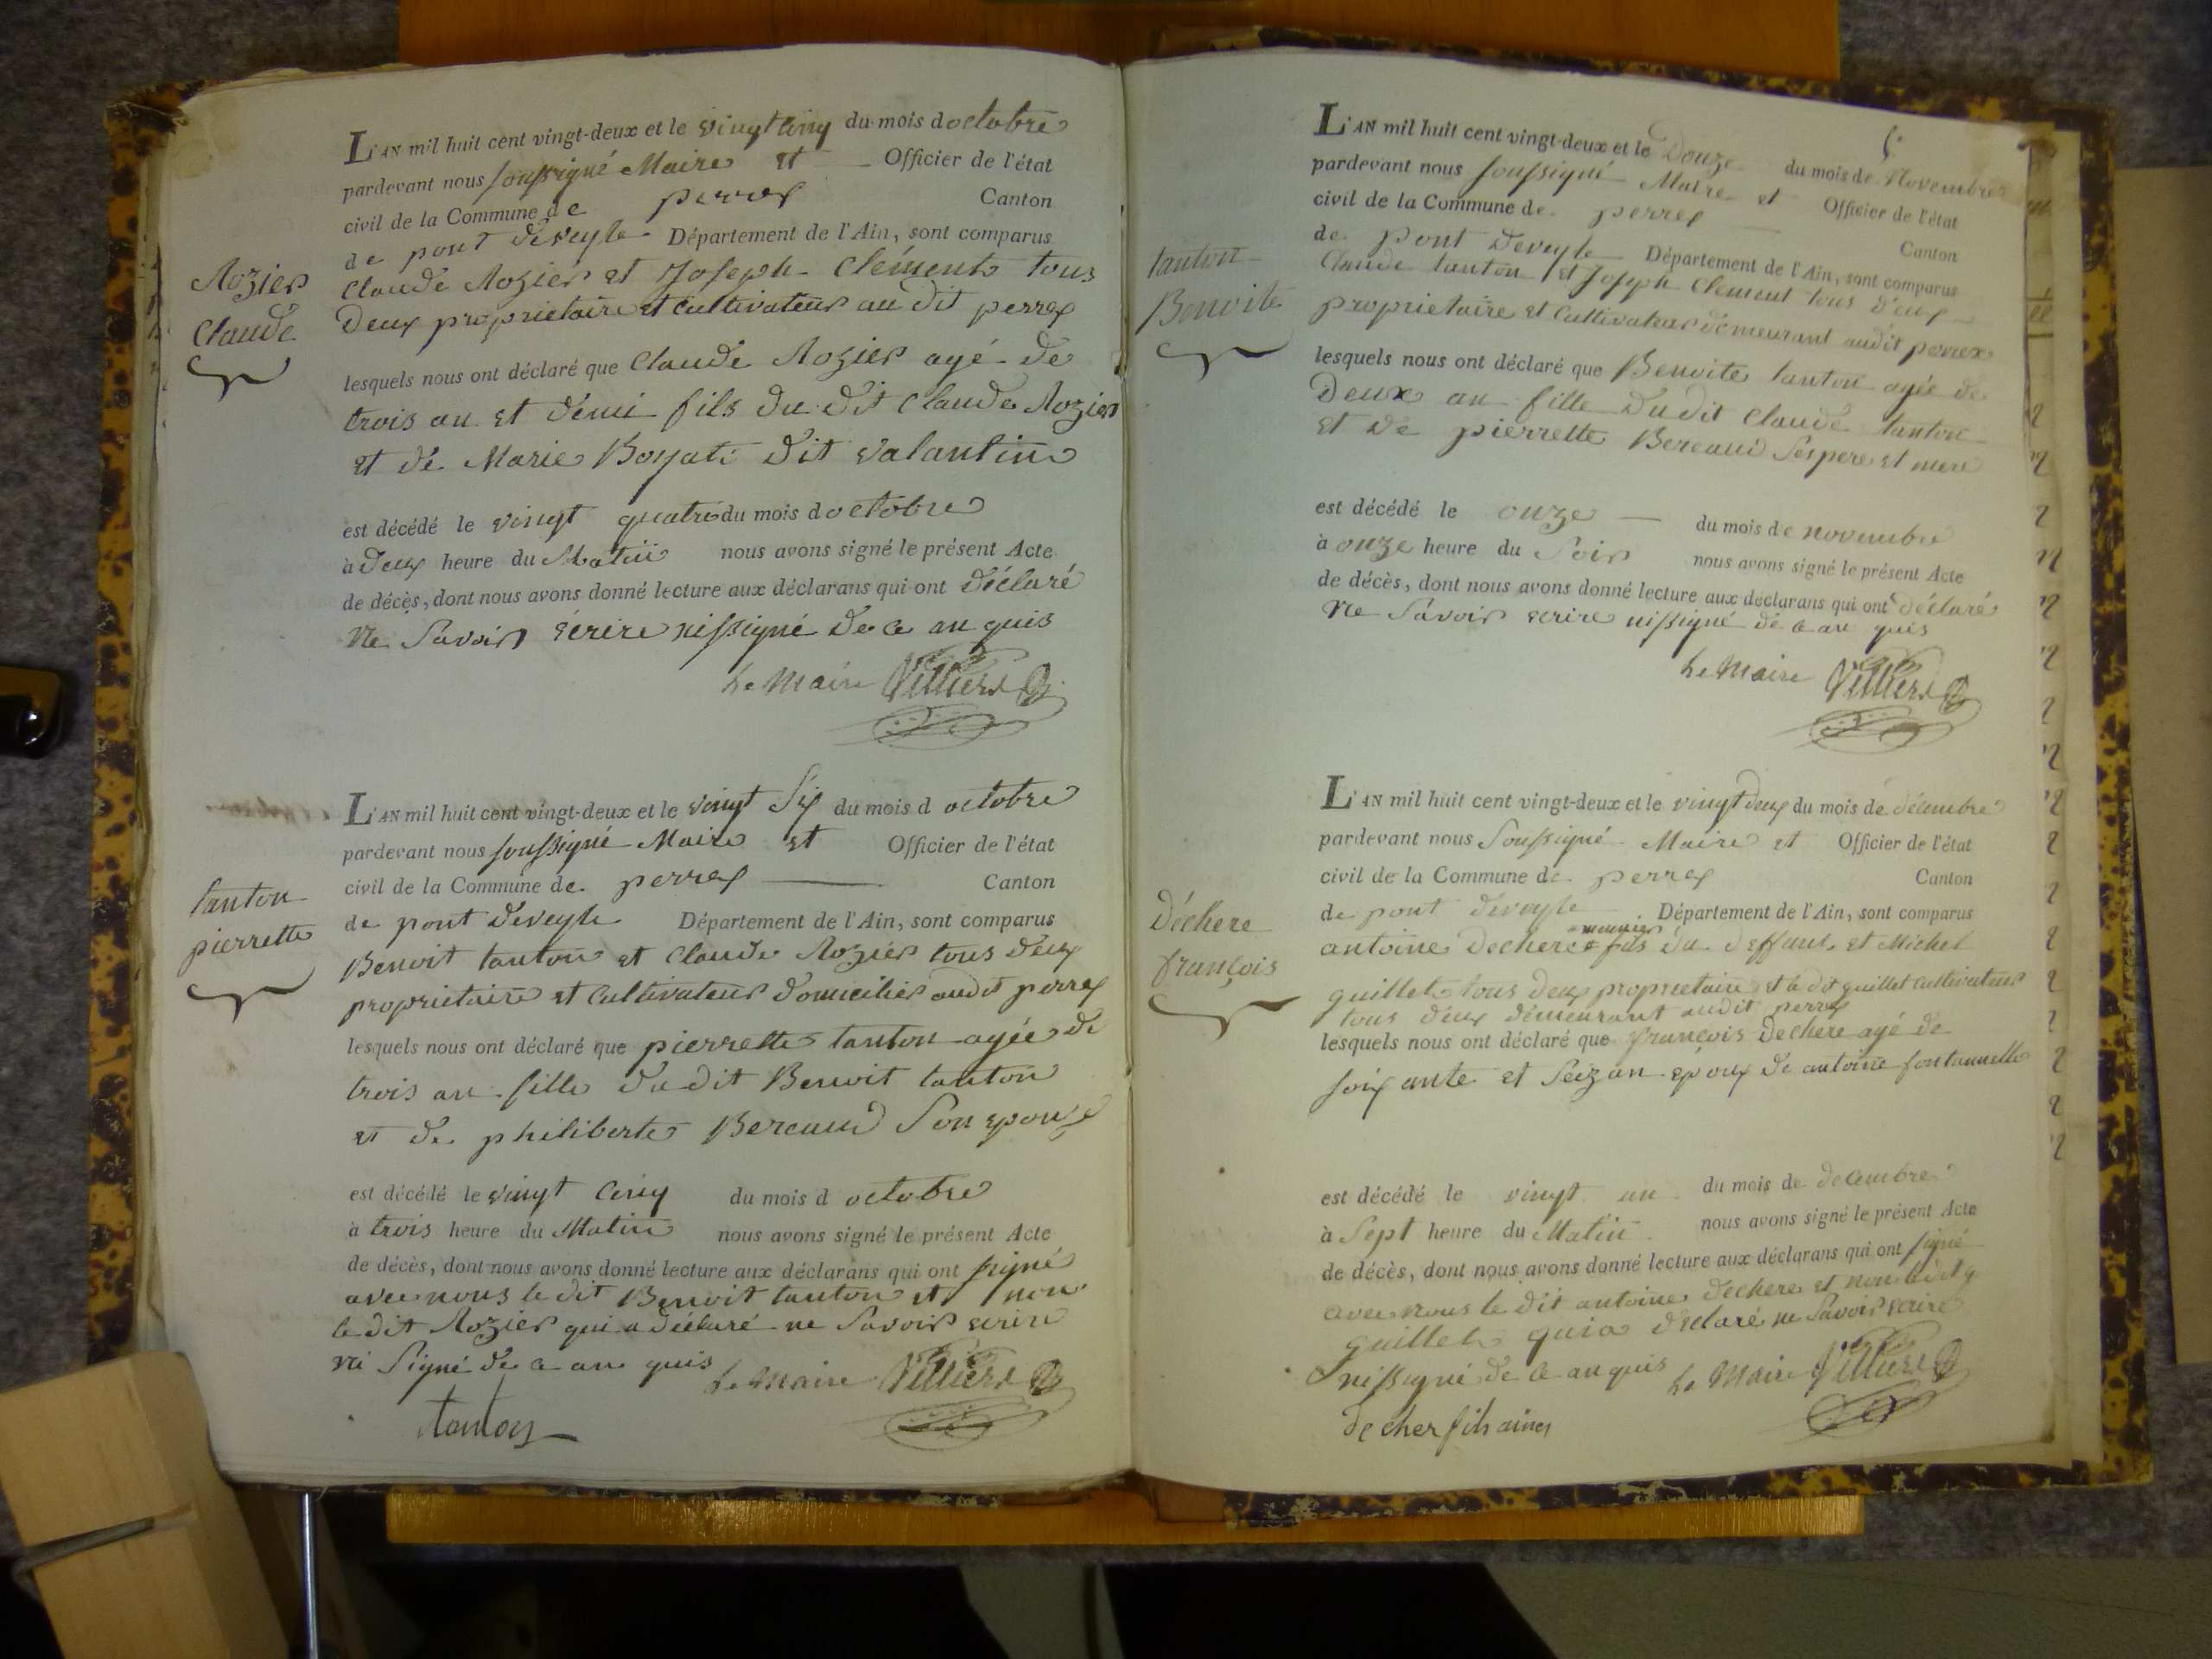 L'AN mil huit cent vingt-deux et le vingt cinq du mois d octobre
pardevant nous soussigné Maire et Officier de l'état
civil de la Commune de perrex Canton
de pont deveyle Département de l'Ain, sont comparus
Rozier
Claude
Claude Rozier et Joseph Clément tous
Deux propriétaire et Cultivateur au dit perrex
lesquels nous ont déclaré que Claude Rozier agé de
trois an et démi fils du dit Claude Rozier
et dé Marie Boyati dit valantin
est décédé le vingt quatre du mois d octobre
à deux heure du Matin nous avons signé le présent Acte
de décès, dont nous avons donné lecture aux déclarans qui ont déclaré
ne savoir écrire ni signé de ce an quis
Le Maire Villierd
L'AN mil huit cent vingt-deux et le vingt six du mois d octobre
pardevant nous soussigné Maire et Officier de l'état
civil de la Commune de perrex Canton
tanton
pierrette
de pont deveyle Département de l'Ain, sont comparus
Benoit tanton et Claude Rozier tous deux
propriétaire et Cultivateur domicilier audit perrex
lesquels nous ont déclaré que pierrette tanton agée de
trois an fille du dit Benoit tanton
et de philiberte Bereaud son epouse
est décédé le vingt cinq du mois d octobre
à trois heure du Matin nous avons signé le présent Acte
de décès, dont nous avons donné lecture aux déclarans qui ont signé
avec nous le dit Benoit tanton et non
le dit Rozier qui a déclaré ne savoir ecrire
ni signé de ce an quis Le Maire Villierd
tanton
L'AN mil huit cent vingt-deux et le Douze du mois de Novembre
pardevant nous soussigné Maire et Officier de l'état
civil de la Commune de perrex Canton
tanton
Benoite
de pont deveyle Département de l'Ain, sont comparus
Claude tanton et Joseph Clement tous deux
proprietaire et Cultivateur démeurant audit perrex
lesquels nous ont déclaré que Benoite tanton agée de
Deux an fille du dit Claude tanton
et de pierrette Bereaud ses pere et mere
est décédé le onze du mois de novembre
à onze heure du soir nous avons signé le présent Acte
de décès, dont nous avons donné lecture aux déclarans qui ont déclaré
ne savoir ecrire ni signé de ce an quis
Le Maire Villierd
L'AN mil huit cent vingt-deux et le vingt deux du mois de décembre
pardevant nous soussigné Maire et Officier de l'état
civil de la Commune de perrex Canton
Déchere
françois
de pont deveyle Département de l'Ain, sont comparus
meunier
antoine Dechere fils du deffunt et Michel
guillet tous deux proprietaire et le dit guillet cultivateur
tous deux démeurant audit perrex
lesquels nous ont déclaré que françois Dechere agé de
soixante et seiz an epoux de antoine fontannelle
est décédé le vingt un du mois de decembre
à Sept heure du Matin nous avons signé le présent Acte
de décès, dont nous avons donné lecture aux déclarans qui ont signé
avec nous le dit antoine dechere et non le dit
guillet qui a déclaré ne savoir ecrire
ni signé de ce an quis Le Maire Villierd
decher fils ainé